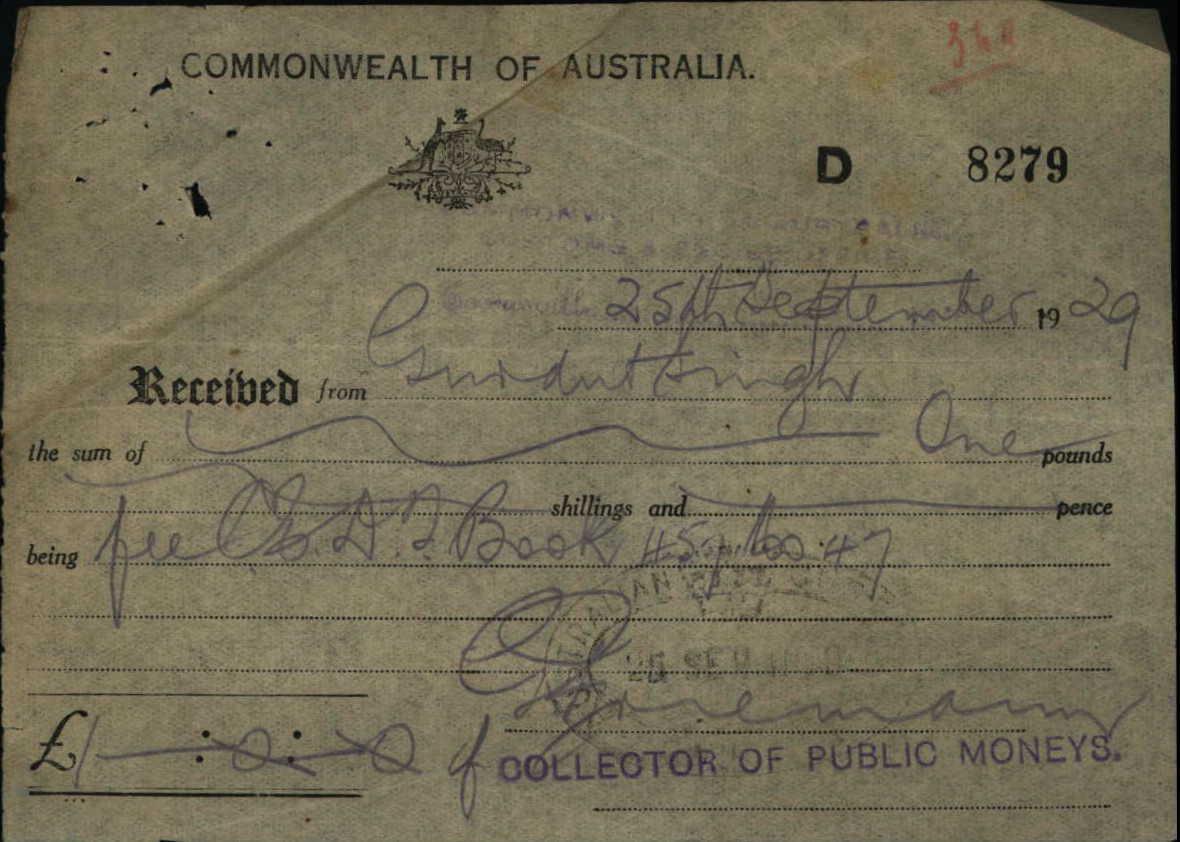 COMMONWEALTH OF AUSTRALIA.
D 8279
25th September 1929
Received from Gurdut Singh
the sum of One pounds
shillings and pence
being fee C. D. T. Book 457 No 47
25 SEP
£1 : 0 : 0 f
COLLECTOR OF PUBLIC MONEYS.